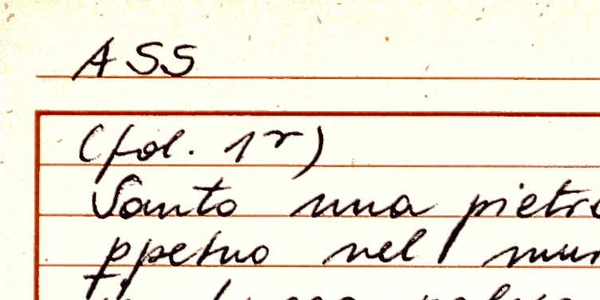 ASS
(fol. 1r)
Santo una pietr
ppetuo nel mur